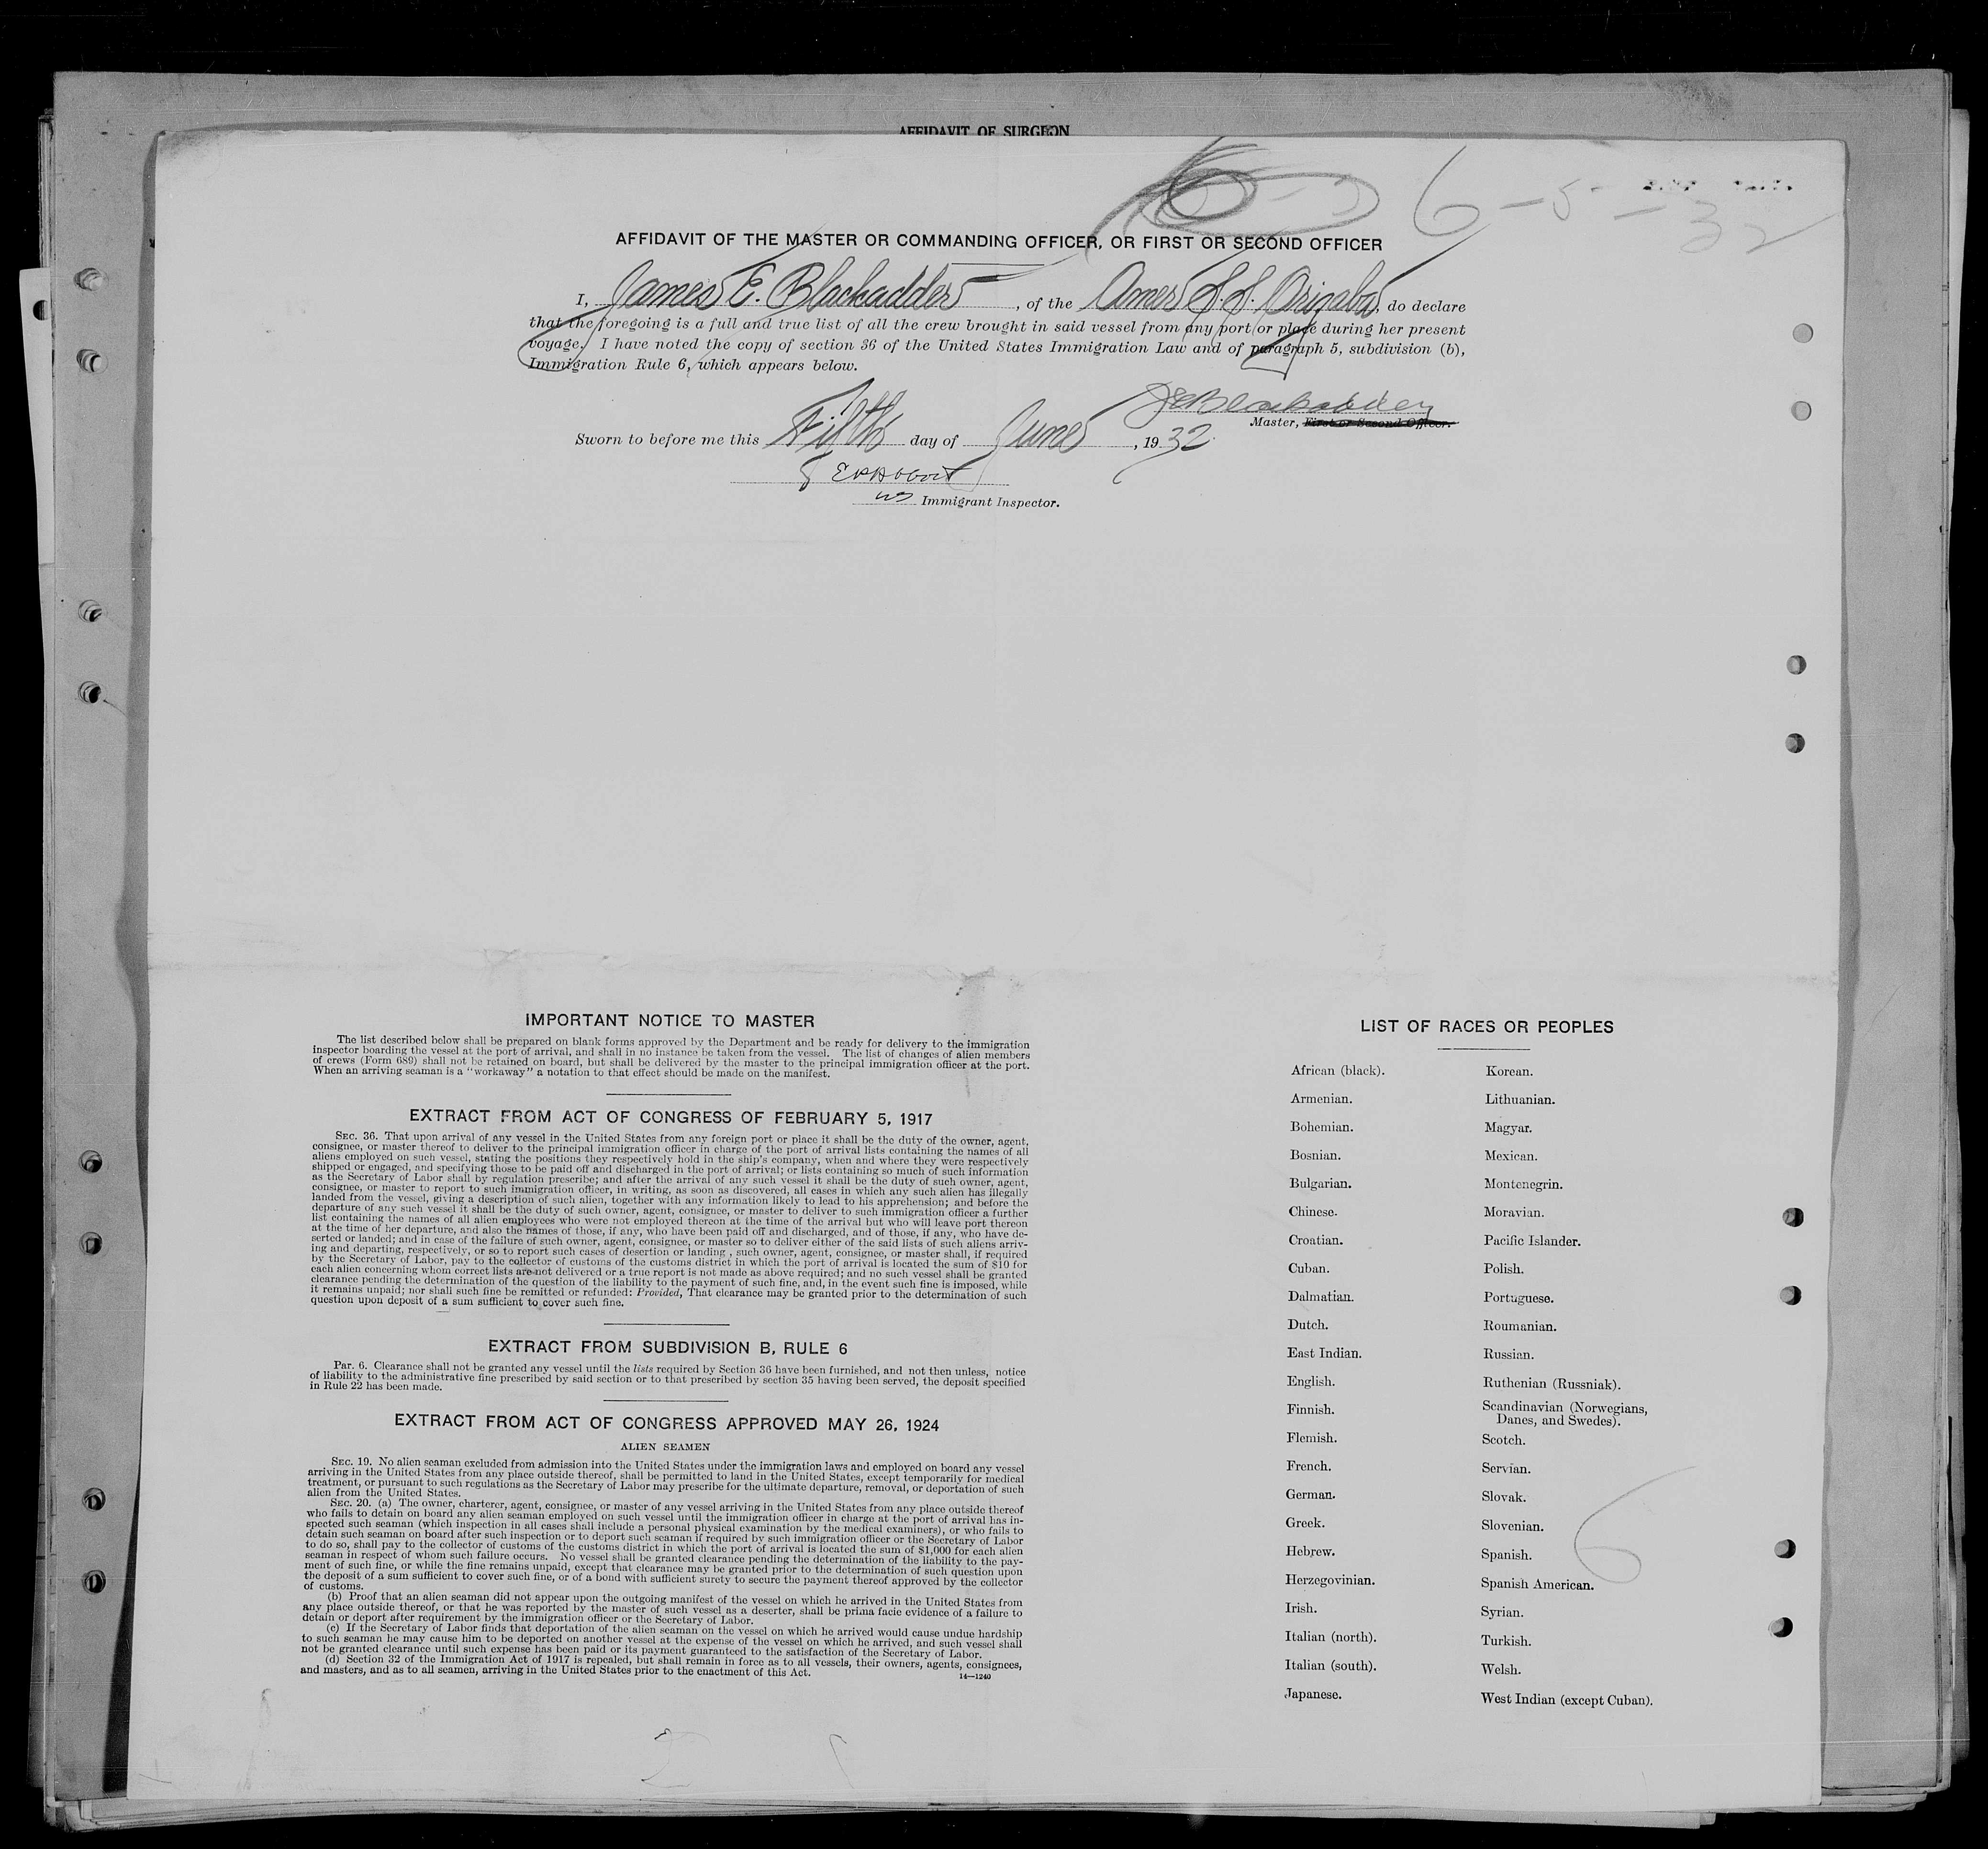 AFFIDAVIT OF SURGEON
6-5-32
AFFIDAVIT OF THE MASTER OR COMMANDING OFFICER, OR FIRST OR SECOND OFFICER
I, James E. Blackadder, of the Amer S.S. Orizaba, do declare
that the foregoing is a full and true list of all the crew brought in said vessel from any port or place during her present
voyage. I have noted the copy of section 36 of the United States Immigration Law and of paragraph 5, subdivision (b),
Immigration Rule 6, which appears below.
JEBlackadder
Master, First or Second Officer.
Sworn to before me this Fifth day of June, 1932
Immigrant Inspector.
IMPORTANT NOTICE TO MASTER
The list described below shall be prepared on blank forms approved by the Department and be ready for delivery to the immigration
inspector boarding the vessel at the port of arrival, and shall in no instance be taken from the vessel. The list of changes of alien members
of crews (Form 689) shall not be retained on board, but shall be delivered by the master to the principal immigration officer at the port.
When an arriving seaman is a "workaway" a notation to that effect should be made on the manifest.
EXTRACT FROM ACT OF CONGRESS OF FEBRUARY 5, 1917
SEC. 36. That upon arrival of any vessel in the United States from any foreign port or place it shall be the duty of the owner, agent,
consignee, or master thereof to deliver to the principal immigration officer in charge of the port of arrival lists containing the names of all
aliens employed on such vessel, stating the positions they respectively hold in the ship's company, when and where they were respectively
shipped or engaged, and specifying those to be paid off and discharged in the port of arrival; or lists containing so much of such information
as the Secretary of Labor shall by regulation prescribe; and after the arrival of any such vessel it shall be the duty of such owner, agent,
consignee, or master to report to such immigration officer, in writing, as soon as discovered, all cases in which any such alien has illegally
landed from the vessel, giving a description of such alien, together with any information likely to lead to his apprehension; and before the
departure of any such vessel it shall be the duty of such owner, agent, consignee, or master to deliver to such immigration officer a further
list containing the names of all alien employees who were not employed thereon at the time of the arrival but who will leave port thereon
at the time of her departure, and also the names of those, if any, who have been paid off and discharged, and of those, if any, who have de-
serted or landed; and in case of the failure of such owner, agent, consignee, or master so to deliver either of the said lists of such aliens arriv-
ing and departing, respectively, or so to report such cases of desertion or landing, such owner, agent, consignee, or master shall, if required
by the Secretary of Labor, pay to the collector of customs of the customs district in which the port of arrival is located the sum of $10 for
each alien concerning whom correct lists are not delivered or a true report is not made as above required; and no such vessel shall be granted
clearance pending the determination of the question of the liability to the payment of such fine, and, in the event such fine is imposed, while
it remains unpaid; nor shall such fine be remitted or refunded: Provided, That clearance may be granted prior to the determination of such
question upon deposit of a sum sufficient to cover such fine.
EXTRACT FROM SUBDIVISION B, RULE 6
PAR. 6. Clearance shall not be granted any vessel until the lists required by Section 36 have been furnished, and not then unless, notice
of liability to the administrative fine prescribed by said section or to that prescribed by section 35 having been served, the deposit specified
in Rule 22 has been made.
EXTRACT FROM ACT OF CONGRESS APPROVED MAY 26, 1924
ALIEN SEAMEN
SEC. 19. No alien seaman excluded from admission into the United States under the immigration laws and employed on board any vessel
arriving in the United States from any place outside thereof, shall be permitted to land in the United States, except temporarily for medical
treatment, or pursuant to such regulations as the Secretary of Labor may prescribe for the ultimate departure, removal, or deportation of such
alien from the United States.
SEC. 20. (a) The owner, charterer, agent, consignee, or master of any vessel arriving in the United States from any place outside thereof
who fails to detain on board any alien seaman employed on such vessel until the immigration officer in charge at the port of arrival has in-
spected such seaman (which inspection in all cases shall include a personal physical examination by the medical examiners), or who fails to
detain such seaman on board after such inspection or to deport such seaman if required by such immigration officer or the Secretary of Labor
to do so, shall pay to the collector of customs of the customs district in which the port of arrival is located the sum of $1,000 for each alien
seaman in respect of whom such failure occurs. No vessel shall be granted clearance pending the determination of the liability to the pay-
ment of such fine, or while the fine remains unpaid, except that clearance may be granted prior to the determination of such question upon
the deposit of a sum sufficient to cover such fine, or of a bond with sufficient surety to secure the payment thereof approved by the collector
of customs.
(b) Proof that an alien seaman did not appear upon the outgoing manifest of the vessel on which he arrived in the United States from
any place outside thereof, or that he was reported by the master of such vessel as a deserter, shall be prima facie evidence of a failure to
detain or deport after requirement by the immigration officer or the Secretary of Labor.
(c) If the Secretary of Labor finds that deportation of the alien seaman on the vessel on which he arrived would cause undue hardship
to such seaman he may cause him to be deported on another vessel at the expense of the vessel on which he arrived, and such vessel shall
not be granted clearance until such expense has been paid or its payment guaranteed to the satisfaction of the Secretary of Labor.
(d) Section 32 of the Immigration Act of 1917 is repealed, but shall remain in force as to all vessels, their owners, agents, consignees,
and masters, and as to all seamen, arriving in the United States prior to the enactment of this Act.
14—1240
LIST OF RACES OR PEOPLES
African (black).
Armenian.
Bohemian.
Bosnian.
Bulgarian.
Chinese.
Croatian.
Cuban.
Dalmatian.
Dutch.
East Indian.
English.
Finnish.
Flemish.
French.
German.
Greek.
Hebrew.
Herzegovinian.
Irish.
Italian (north).
Italian (south).
Japanese.
Korean.
Lithuanian.
Magyar.
Mexican.
Montenegrin.
Moravian.
Pacific Islander.
Polish.
Portuguese.
Roumanian.
Russian.
Ruthenian (Russniak).
Scandinavian (Norwegians,
Danes, and Swedes).
Scotch.
Servian.
Slovak.
Slovenian.
Spanish.
Spanish American.
Syrian.
Turkish.
Welsh.
West Indian (except Cuban).
6